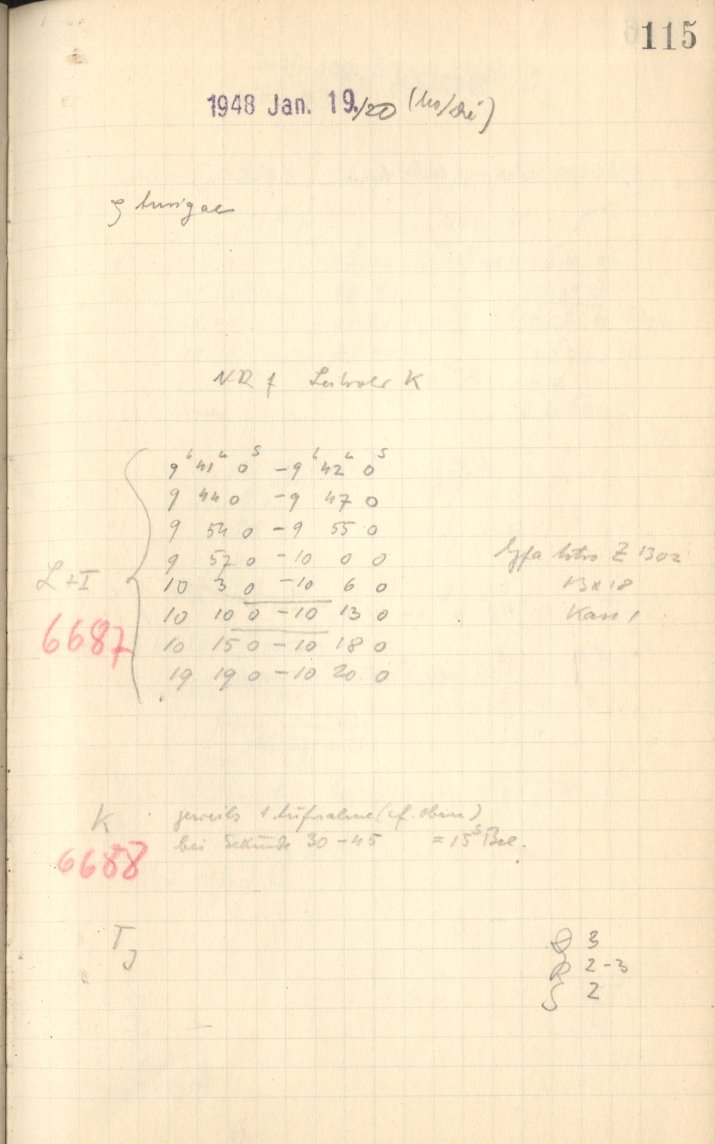 115
1948 Jan. 19./20 (Mo/Di)
ζ Aurigae
K
9ʰ 41ᵐ 0ˢ - 9ʰ 42ᵐ 0ˢ
9 44 0 - 9 47 0
9 54 0 - 9 55 0
9 57 0 - 10 0 0
L + I
10 3 0 - 10 6 0
6687
10 10 0 - 10 13 0
10 15 0 - 10 18 0
19 19 0 - 10 20 0
Agfa Astro Z 1302
13x18
Kass 1
K jeweils 1 Aufnahme (cf. oben)
6688
bei Sekunde 30 - 45 = 15ˢ Bel.
T
3
2-3
2